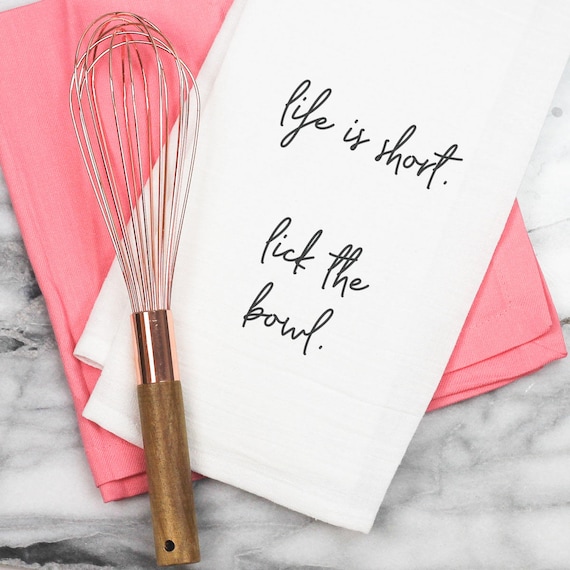 life is short.
lick the
bowl.